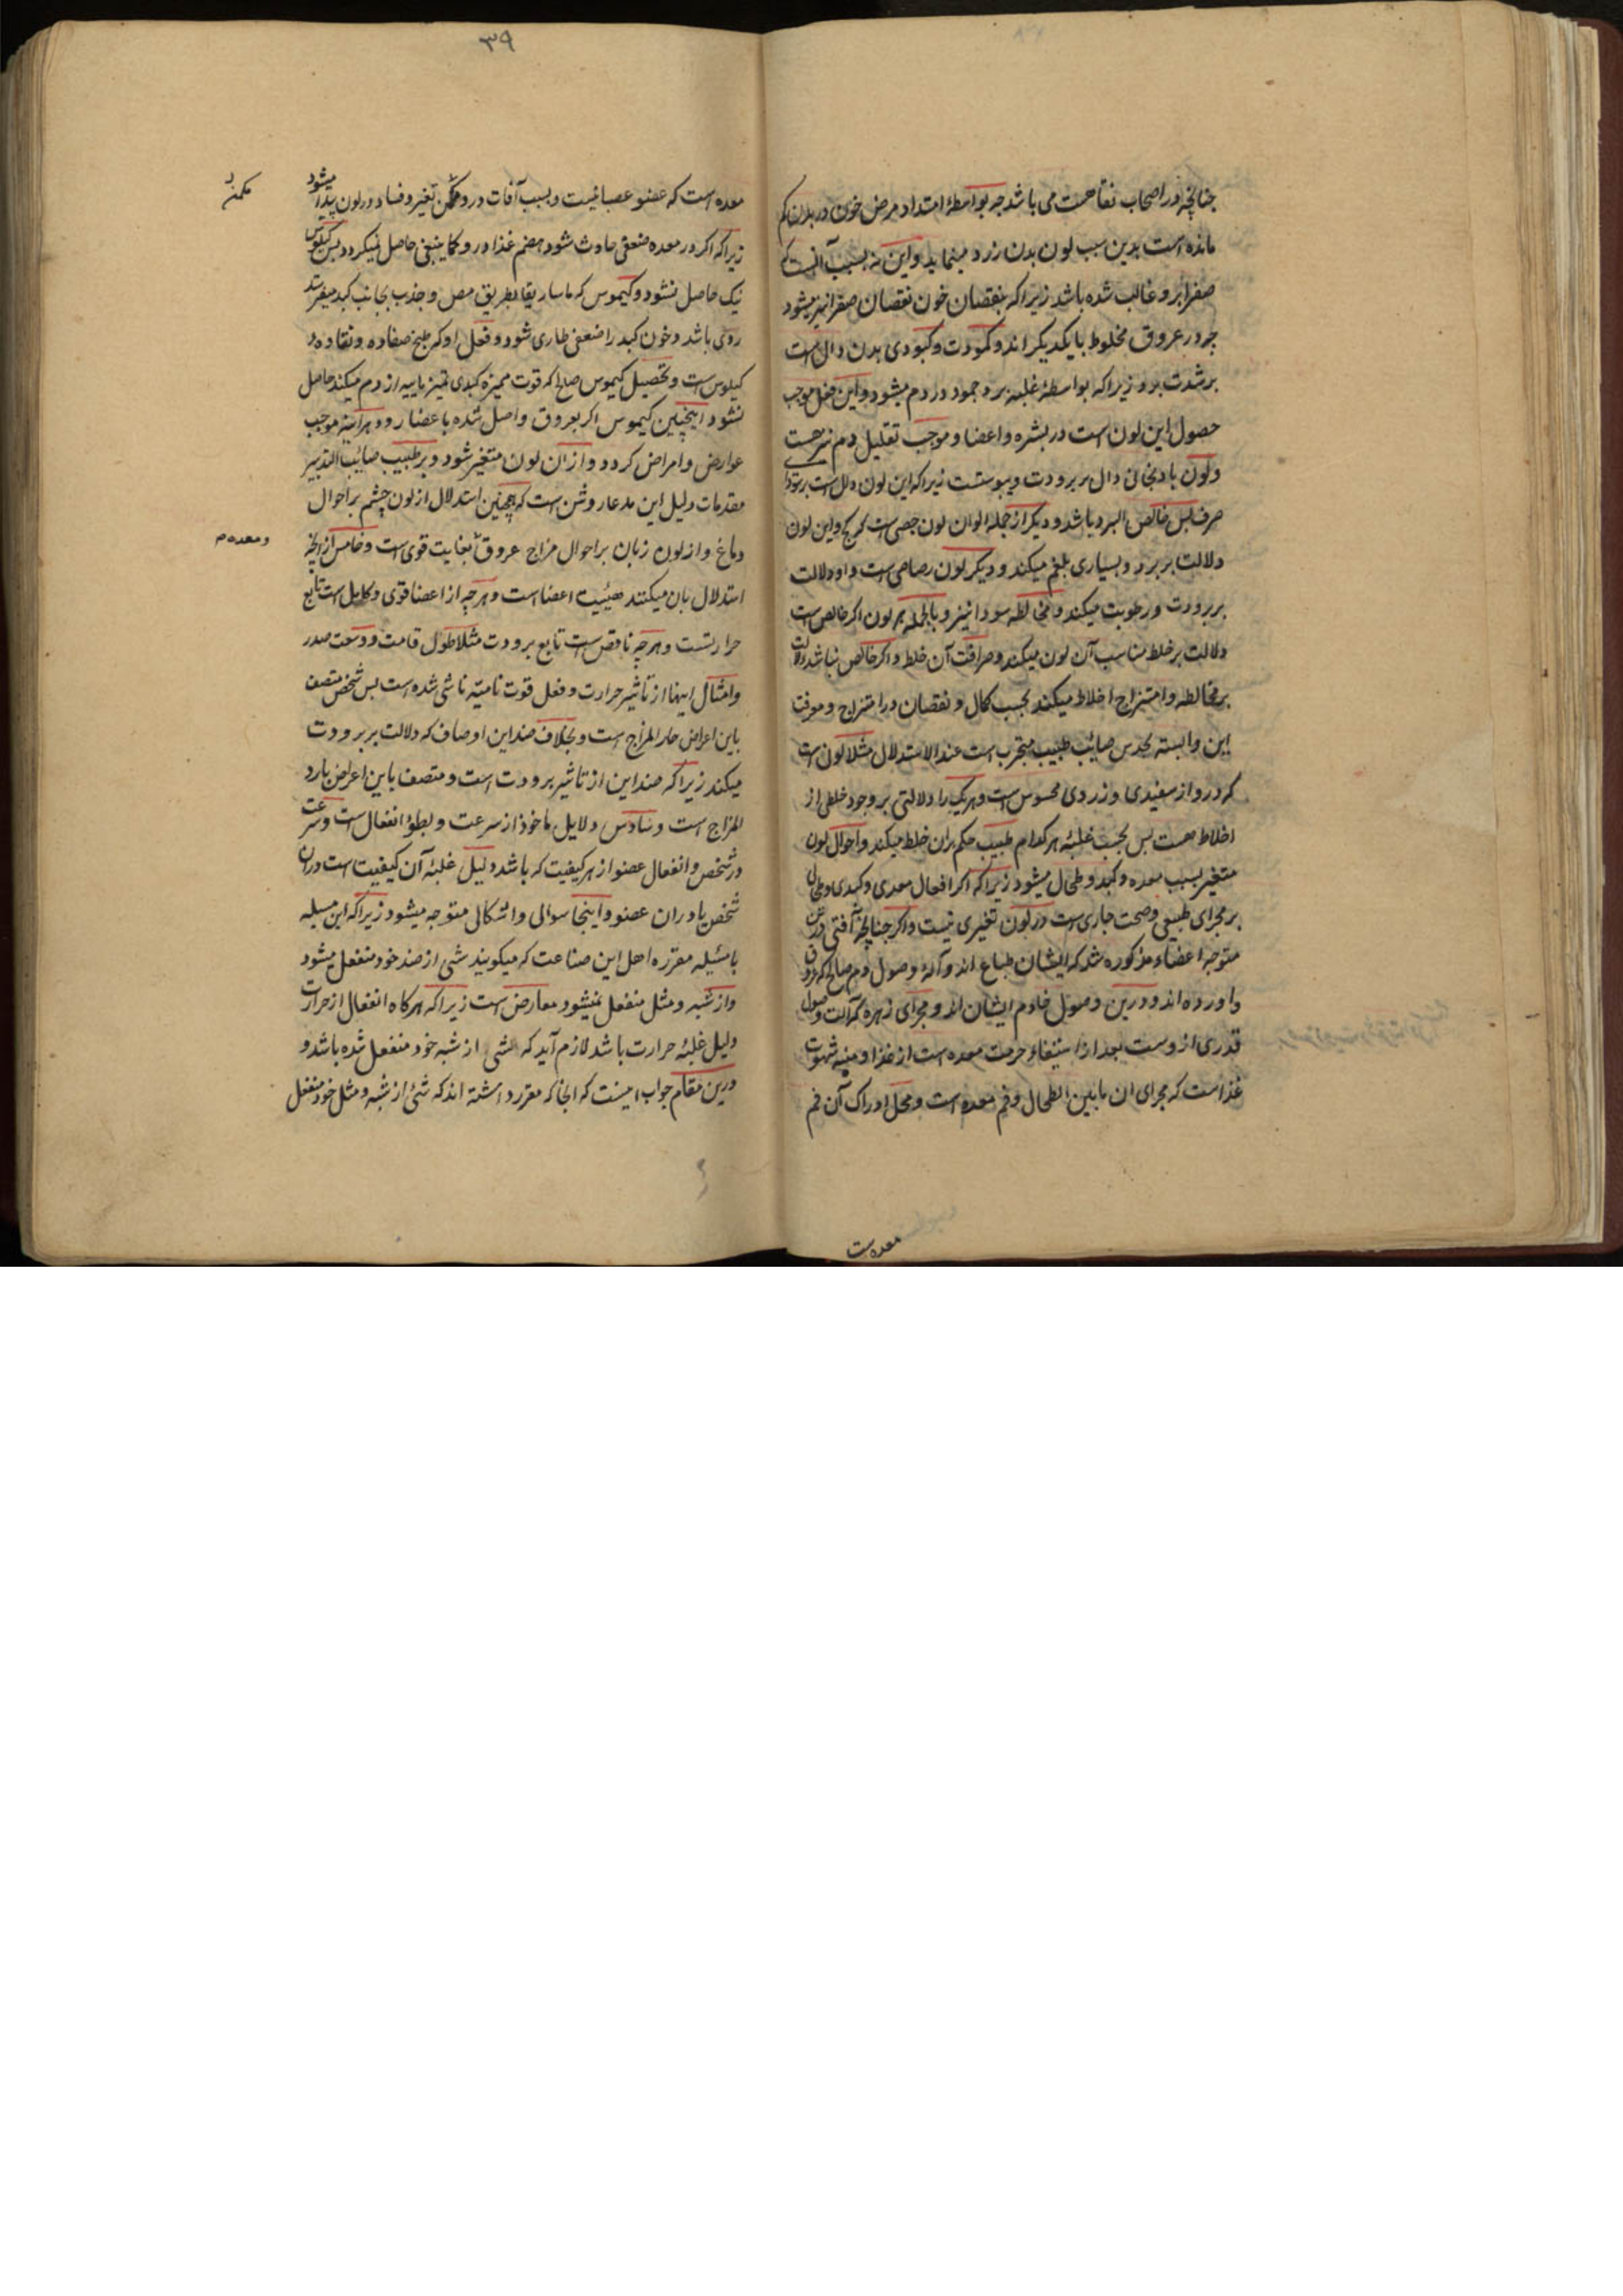 چنانچه در اصحاب نقاهت می باشد چه بواسطهٔ امتداد مرض خون در بدن کم
مانده است بدین سبب لون بدن زرد مینماید و این نه بسبب آنست که
صفرا برو غالب شده باشد زیرا که بنقصان خون نقصان صفرا نیز میشود
چه در عروق مخلوط بایکدیکر اند و کمودت و کبودی بدن دال است
بر شدت برد زیرا که بواسطهٔ غلبهٔ برد جمود در دم میشود و این فعل موجب
حصول این لون است در بشره و اعضا و موجب تقلیل دم نیز هست
و لون بادنجانی دال بر برودت و یبوستست زیرا که این لون دال است بر سودا
صرف لبس خالص البرد باشد و دیکر از جمله الوان لون جصی است که کچ و این لون
دلالت بر برد و بسیاری بلغم میکند و دیکر لون رصاصی است و او دلالت
بر برودت و رطوبت میکند و مخالطه سودا نیز و بالجمله هر لون اکر خالص است
دلالت بر خلط مناسب آن لون میکند و صرافت آن خلط و اکر خالص نباشد دلالت
بر مخالطه و امتزاج اخلاط میکند بحسب کمال و نقصان در امتزاج و معرفت
این وابسته بحدس صائب طبیب مجرب است عند الاستدلال مثلا لون است
که درو از سفیدی و زردی محسوس است و هریک را دلالتی بر وجود خلطی از
اخلاط هست بس بحسب غلبهٔ هر کدام طبیب حکم بران خلط میکند و احوال لون
متغیر بسبب معده و کبد و طحال میشود زیرا که اکر افعال معدی و کبدی و طحالی
بر مجرای طبیعی و صحت جاری است در لون تغیری نیست و اکر چنانچه آفتی درین
متوجه اعضاء مذکوره شد که ایشان طباع اند و آلهٔ وصول دم صالح که عروق
و اورده اند و درین وصول خادم ایشان اند و مجرای زهره که آلت وصول
قدری ازوست بعد از استیفاء حرمت معده است از غذا و منبه شهوت
غذاست که مجرای ان مابین الطحال و فم معده است و محل ادراک آن فم
معده است
۳۹
معده است که عضو عصبانیست و بسبب آفات درو ممکن تغیر و فساد در لون پیدا میشود
ممکنه
زیرا که اکر در معده ضعفی حادث شود هضم غذا درو کما ینبغی حاصل نمیکردد بس کیلوس
نیک حاصل نشود و کیموس که ماساریقا بطریق مص و جذب بجانب کبد میفرستد
ردی باشد و خون کبد را ضعفی طاری شود و فعل او که طبخ صفاده و نقاوهٔ
کیلوس است و تحصیل کیموس صالح که قوت ممیزه کبدی تمیز یابیه از دم میکند حاصل
نشود اینچنین کیموس اکر بعروق واصل شده باعضا رود هر آینه موجب
عوارض و امراض کردد و از ان لون متغیر شود و بر طبیب صائب التدبیر
مقدمات دلیل این مدعا روشن است که همچنین استدلال از لون چشم بر احوال
دماغ و از لون زبان بر احوال مزاج عروق بغایت قوی است و خامس از انچه
و معده م
استدلال بان میکنند هیئیت اعضا است و هر چه از اعضا قوی و کامل است تابع
حرارتست و هر چه ناقص است تابع برودت مثلا طول قامت و وسعت صدر
و امثال اینها از تاثیر حرارت و فعل قوت نامیته ناشی شده است بس شخص متصف
باین اعراض حار المزاج است و بخلاف ضد این اوصاف که دلالت بر برودت
میکند زیرا که ضد این از تاثیر برودت است و متصف باین اعراض بارد
المزاج است و سادس دلایل ماخوذ از سرعت و بطؤ انفعال است و سرعت
در شخص و انفعال عضو از هر کیفیت که باشد دلیل غلبهٔ آن کیفیت است دران
شخص یا دران عضو و اینجا سوالی و اشکالی متوجه میشود زیرا که این مسیله
با مسئیله مقرره اهل این صناعت که میکویند شی از ضد خود منفعل میشود
و از شبه و مثل منفعل نمیشود معارض است زیرا که هرکاه انفعال از حرارت
دلیل غلبهٔ حرارت باشد لازم آید که شی از شبه خود منفعل شده باشد و
درین مقام جواب اینست که انجا که مقرر داشته اند که شئ از شبه و مثل خود منفعل